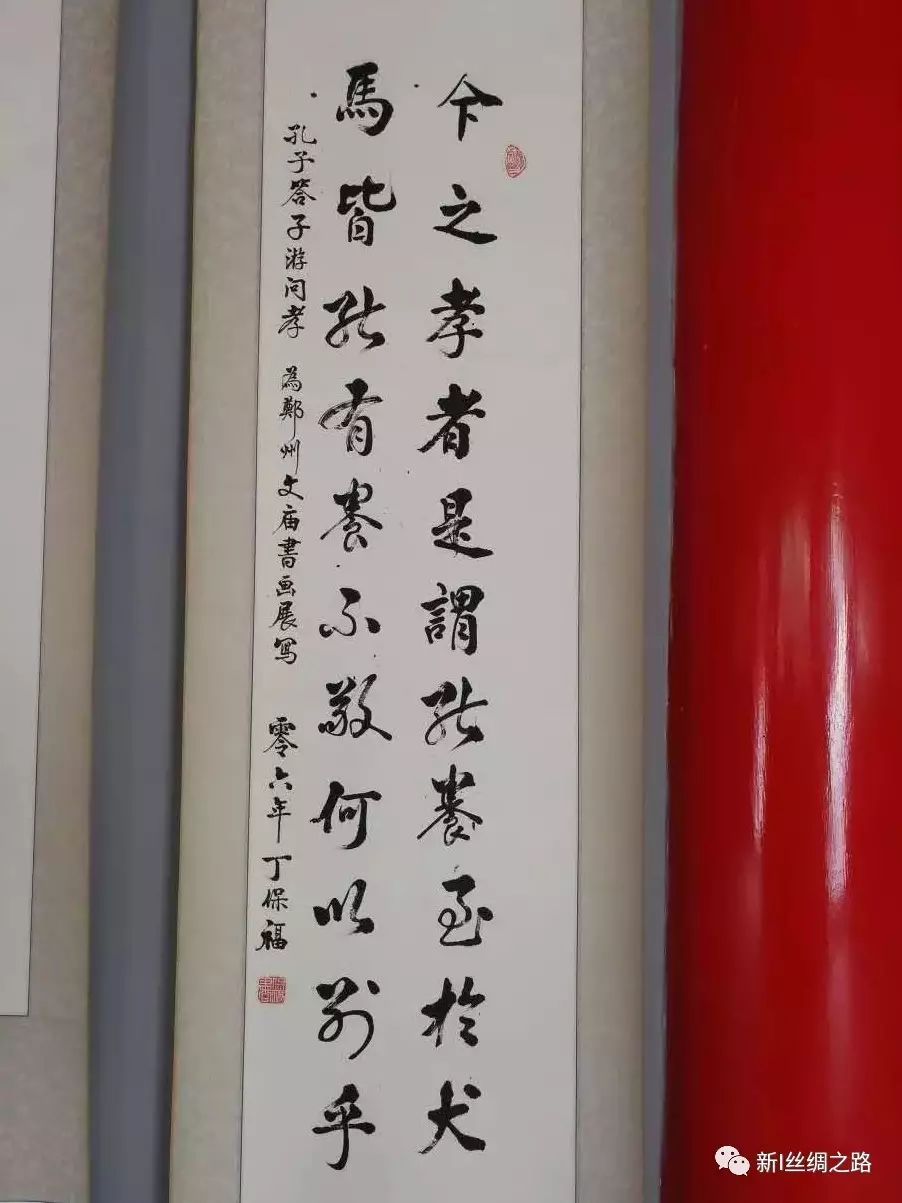 今之孝者是謂能養至於犬
馬皆能有養不敬何以别乎
孔子答子游问孝 為鄭州文庙書画展写 零六年丁保福
新I丝绸之路